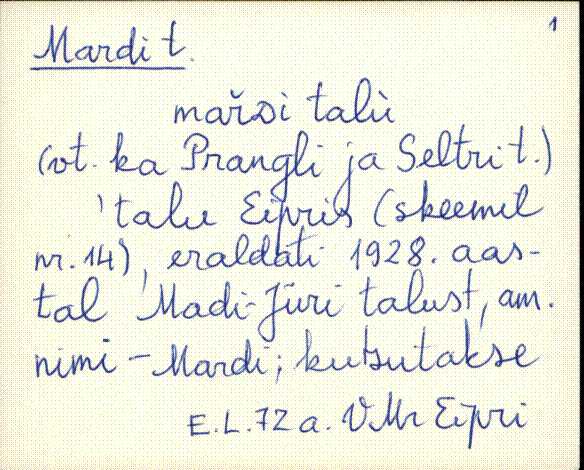 1
Mardi t.
mařdi talù
(vt. ka Prangli ja Seltri t.)
'talu Eipris (skeemil
nr. 14), eraldati 1928. aas-
tal Madi-Jüri talust, am.
nimi - Mardi; kutsutakse
E.L. 72 a. VMr Eipri